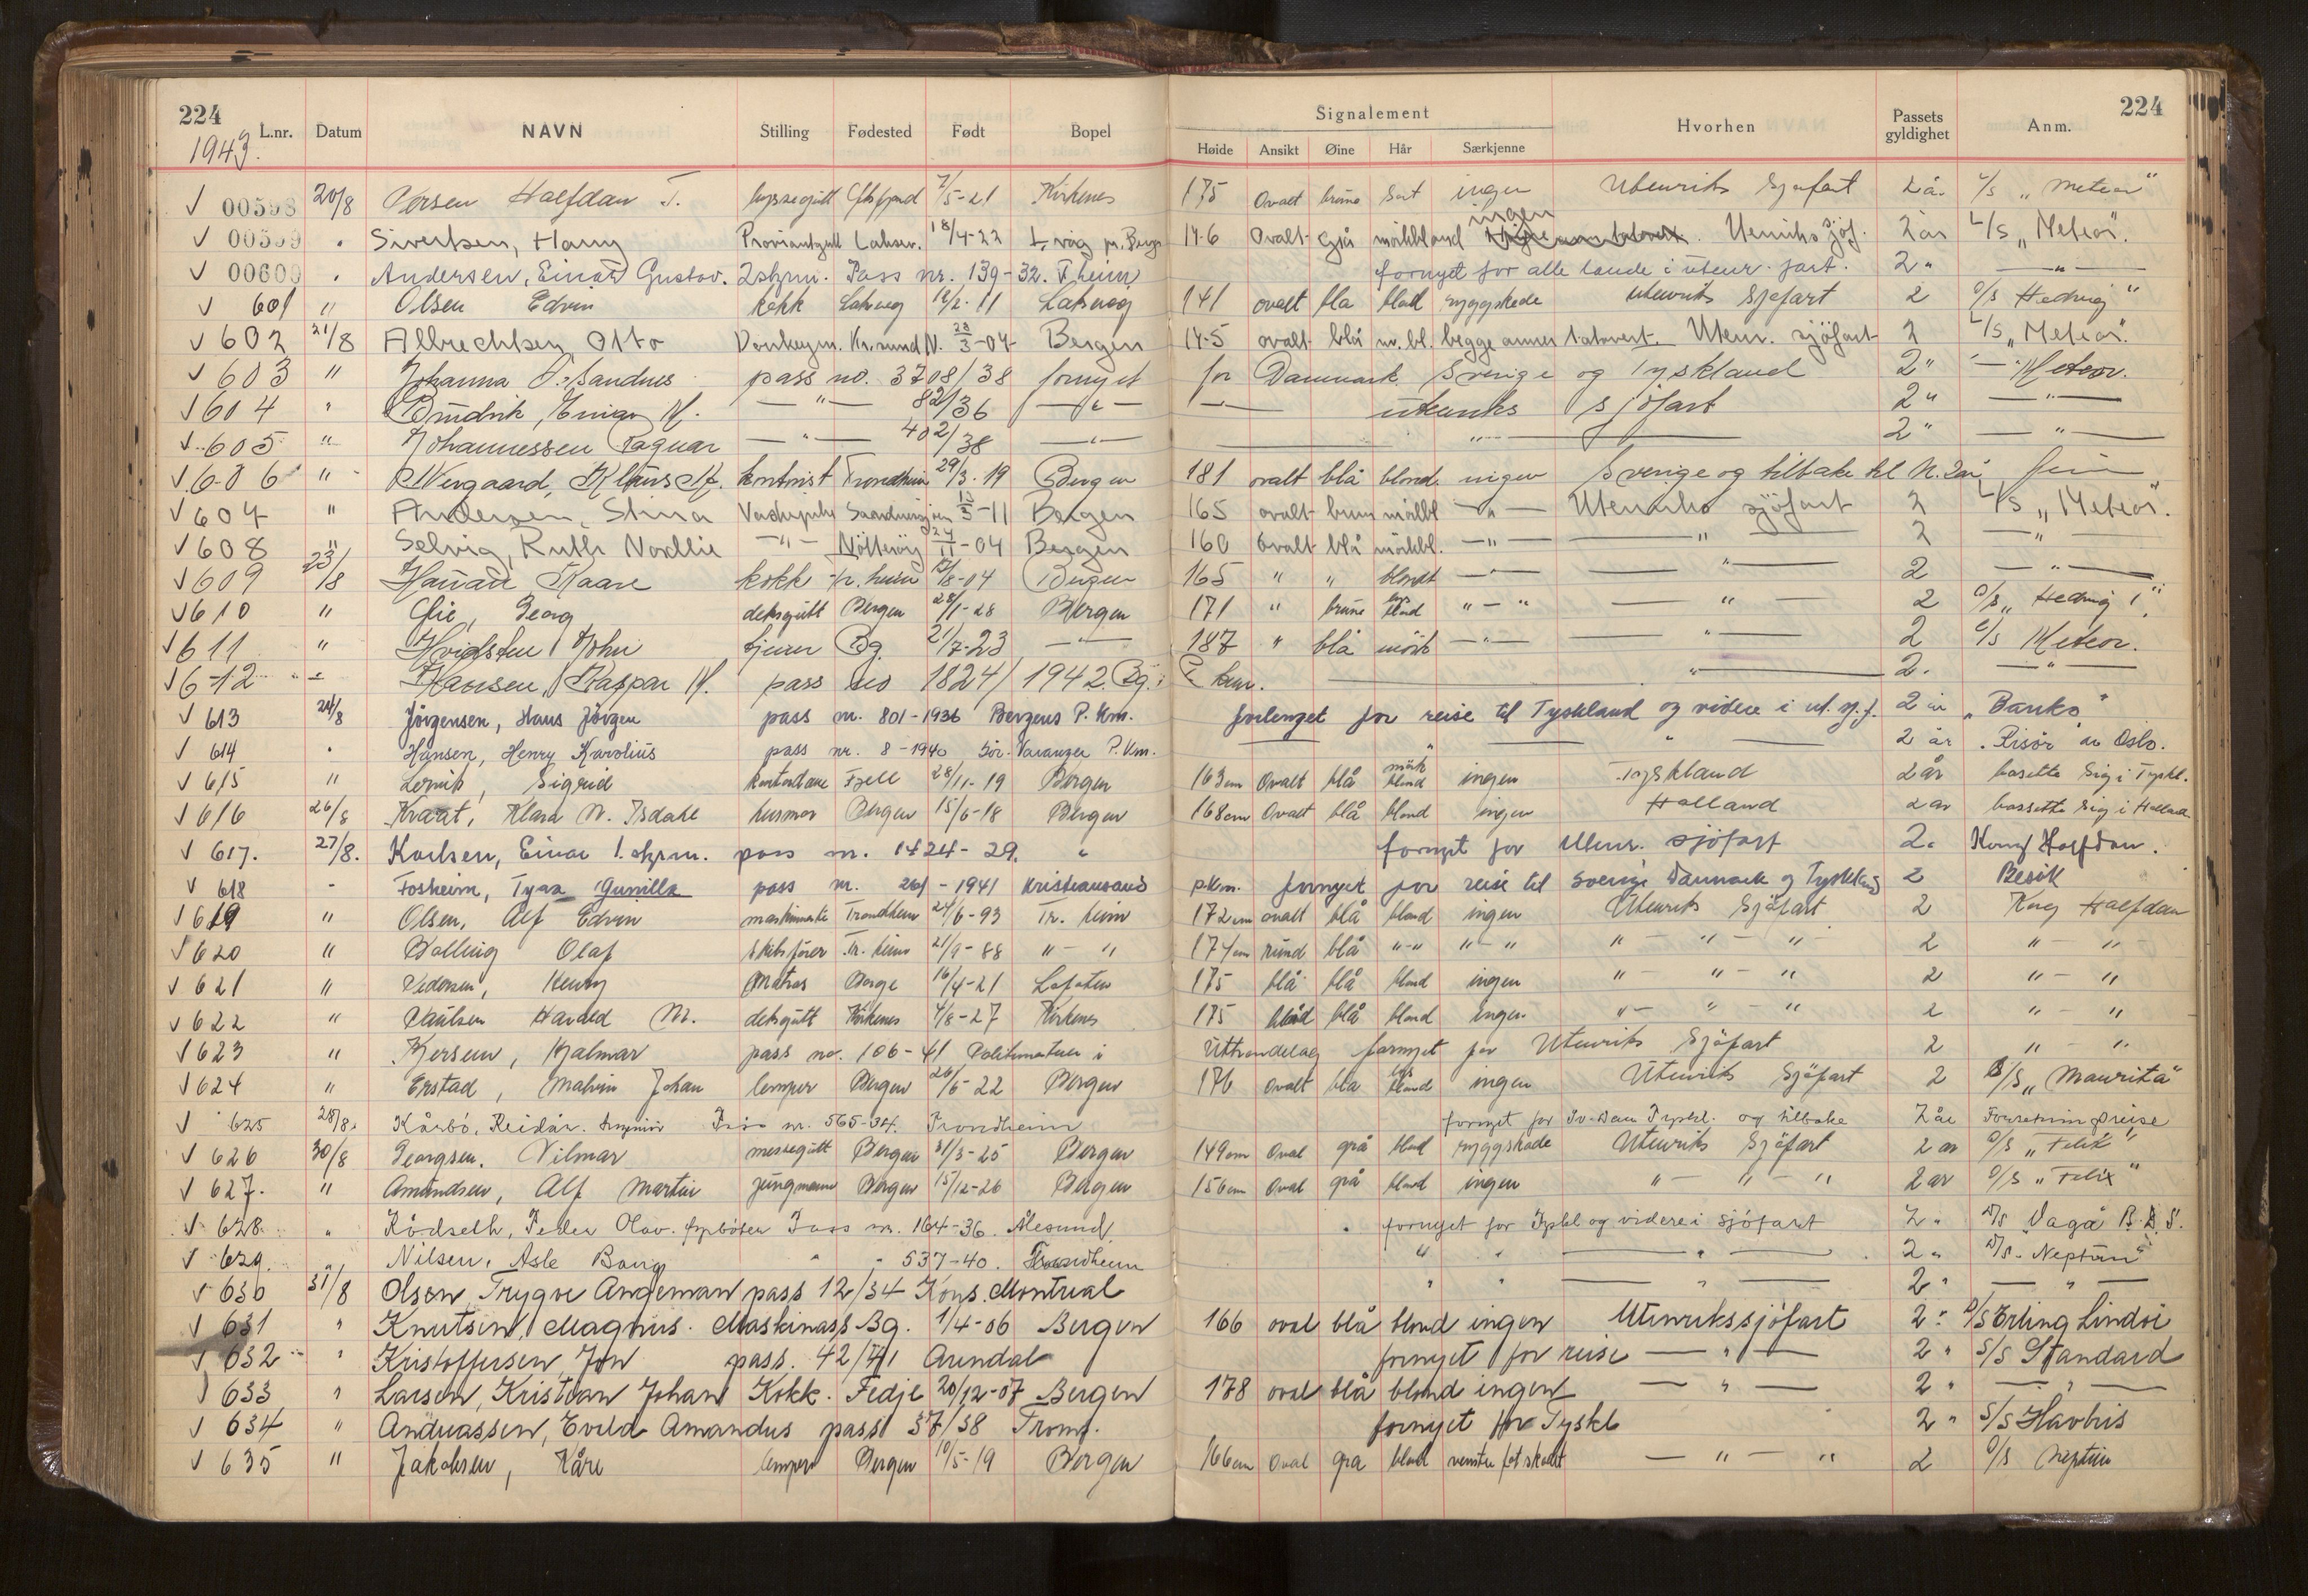 224 224
1943.
Signalement
L.nr. Datum NAVN Stilling Fødested Født Bopel Høide Ansikt Øine Hår Særkjenne Hvorhen Passets gyldighet Anm.
V 00598 20/8 Halfdan T. 7/5-21 Kirkenes 175 Ovalt brune Sort ingen Utenriks Sjøfart 2 år L/s „Meteor"
V 00599 " Sivertsen, Harry Proviantgutt Laksev. 18/4-22 146 Ovalt grå mörkblond ingen Utenriks sjöf. 2 år L/S „Meteor".
V 00600 " Andersen, Einar Gustav. 2 styrm. Pass nr. 139-32. T.heim fornyet for alle lande i utenr. fart. 2 " — " —
V 601 " Olsen Edvin kokk Laksvåg 12/2-11 Laksvåg 141 ovalt blå blond ryggskade utenriks Sjøfart 2 D/s Hedvig"
V 602 21/8 Albrechtsen, Otto Kr.sund N. 23/3-04 Bergen 145 ovalt blå m.bl. begge armer tatovert. Utenr. sjöfart 2 L/S „Meteor".
V 603 " Johanna O. Sandnes pass no. 3708/38 fornyet for Danmark, Sverige og Tyskland 2 " — Meteor.
V 604 " Einar M. — " — 82/36 — " — utenriks sjöfart 2 " — " —
V 605 " Johannessen Ragnar — " — 402/38 — " — — " — 2 " — " —
V 606 " kontorist Trondheim 29/3-19 Bergen 181 ovalt blå blond ingen Sverige og tilbake til N. 2 år
V 607 " Andersen, Stina 13/3-11 Bergen 165 ovalt brun mörkbl — " — Utenriks sjöfart 2 L/S „Meteor".
V 608 " Selvig, Ruth Nötteröy 24/11-04 Bergen 160 Ovalt blå mörkbl. — " — — " — 2 — " —
V 609 23/8 Kaare kokk Tr.heim /8-04 Bergen 165 " " blondt — " — — " — 2 — " —
V 610 " Georg deksgutt Bergen 28/1-28 Bergen 171 " brune lys blond " - " — " — 2 D/s „Hedvig 1"
V 611 " Hvidsten John Bg. 21/7-23 — " — 187 " blå mörk — " — — " — 2 L/s Meteor.
V 612 " Hansen, Kaspar M. pass no 1824/1942. Bg. P. km. — " — 2. — " —
V 613 24/8 Jörgensen, Hans Jörgen pass nr. 801-1936 Bergens P. Km. forlenget for reise til Tyskland og videre i ut. sj.f. 2 år „Banko"
V 614 " Hansen, Henry Karolius pass nr. 8-1940 Sör-Varanger P.Km. — " — " — 2 år „Risör" av Oslo.
V 615 " Sigrid Fjell 28/11-19 Bergen 163 cm Ovalt blå mörk blond ingen Tyskland 2 år bosette Sig i Tyskl.
V 616 26/8 Kraat, Klara N. Isdahl husmor Bergen 15/6-18 Bergen 168 cm Ovalt blå blond ingen Holland 2 år bossette sig i Holland.
V 617. 27/8. Karlsen, Einar 1. styrm. pass nr. 1424-29. " fornyet for Utenr. sjöfart 2 " Kong Halfdan.
V 618 - Fosheim, Tyra Gunilla pass nr. 261-1941 Kristiansand p.km. fornyet for reise til Sverige Danmark og Tyskland 2 Besök
V 619 " Olsen, Alf Edvin Trondheim 24/6-93 Tr. heim 172 cm ovalt blå blond ingen Utenriks Sjöfart 2 Kong Halfdan
V 620 " Olaf Skibsfører Tr. heim 21/9-88 " - " 174 cm rund blå " - " " - " " - " - " 2 " - "
V 621 " Pedersen, Henry Matros Borge 16/4-21 Lofoten 175 blå blå blond ingen " - " - " 2 " - "
V 622 " Paulsen Harald M. deksgutt Kirkenes 4/8-27 Kirkenes 175 blå blond ingen " - " - " 2 " - "
V 623 " Hjalmar pass no. 106-41 Politimesteren i Uttröndelag fornyet for Utenriks Sjöfart 2 " - "
V 624 " Erstad, Malvin Johan lemper Bergen 26/6-22 Bergen 176 Ovalt blå lys blond ingen Utenriks Sjöfart 2 S/S „Maurita"
V 625 28/8. Kårbö, Reidar. Ingeniör Pass nr. 565-34. Trondheim fornyet for Sv. Dan Tyskl. og tilbake 2 år Forretningsreise
V 626 30/8 Georgsen. Vilmar messegutt Bergen 31/3-25 Bergen 149 cm Oval grå blond ryggskade Utenriks Sjöfart 2 år D/S „Felix"
V 627. " Amundsen, Alf Martin jungmann Bergen 15/12-26 Bergen 156 cm Oval grå blond ingen " - " - " 2 år D/S „Felix"
V 628. " Rödseth, Peder Olav. fyrböter Pass nr. 164-36. Ålesund. fornyet for Tyskl og videre i sjöfart 2 " D/S Vaga B.D.S.
V 629. " Nilsen, Asle Bang " " 537-40. Trondheim " " — " — 2 " D/S. Neptun"
V 630 31/8 Olsen Trygve Angeman pass 12/34 Kons. Montreal " " — " — 2 " — " —
V 631 " Knutsen, Magnus. Maskinass. Bg. 1/4-06 Bergen 166 oval blå blond ingen Utenrikssjöfart 2 " D/S Erling Lindöe
V 632 " Kristoffersen, Jon pass. 42/41 Arendal fornyet for reise — " — 2 " S/S Standard
V 633 " Larsen, Kristian Johan Kokk. Fedje 20/12-07 Bergen 178 oval blå blond ingen — " — 2 " — " —
V 634 " Andreassen, Evald Amandus pass 37/38 Troms. fornyet for Tyskl " 2 " S/S Havbris
V 635 " Jakobsen, Kåre lemper Bergen 10/5-19 Bergen 166 cm Oval grå blond venstre fot skadet — " — " 2 D/S Neptun